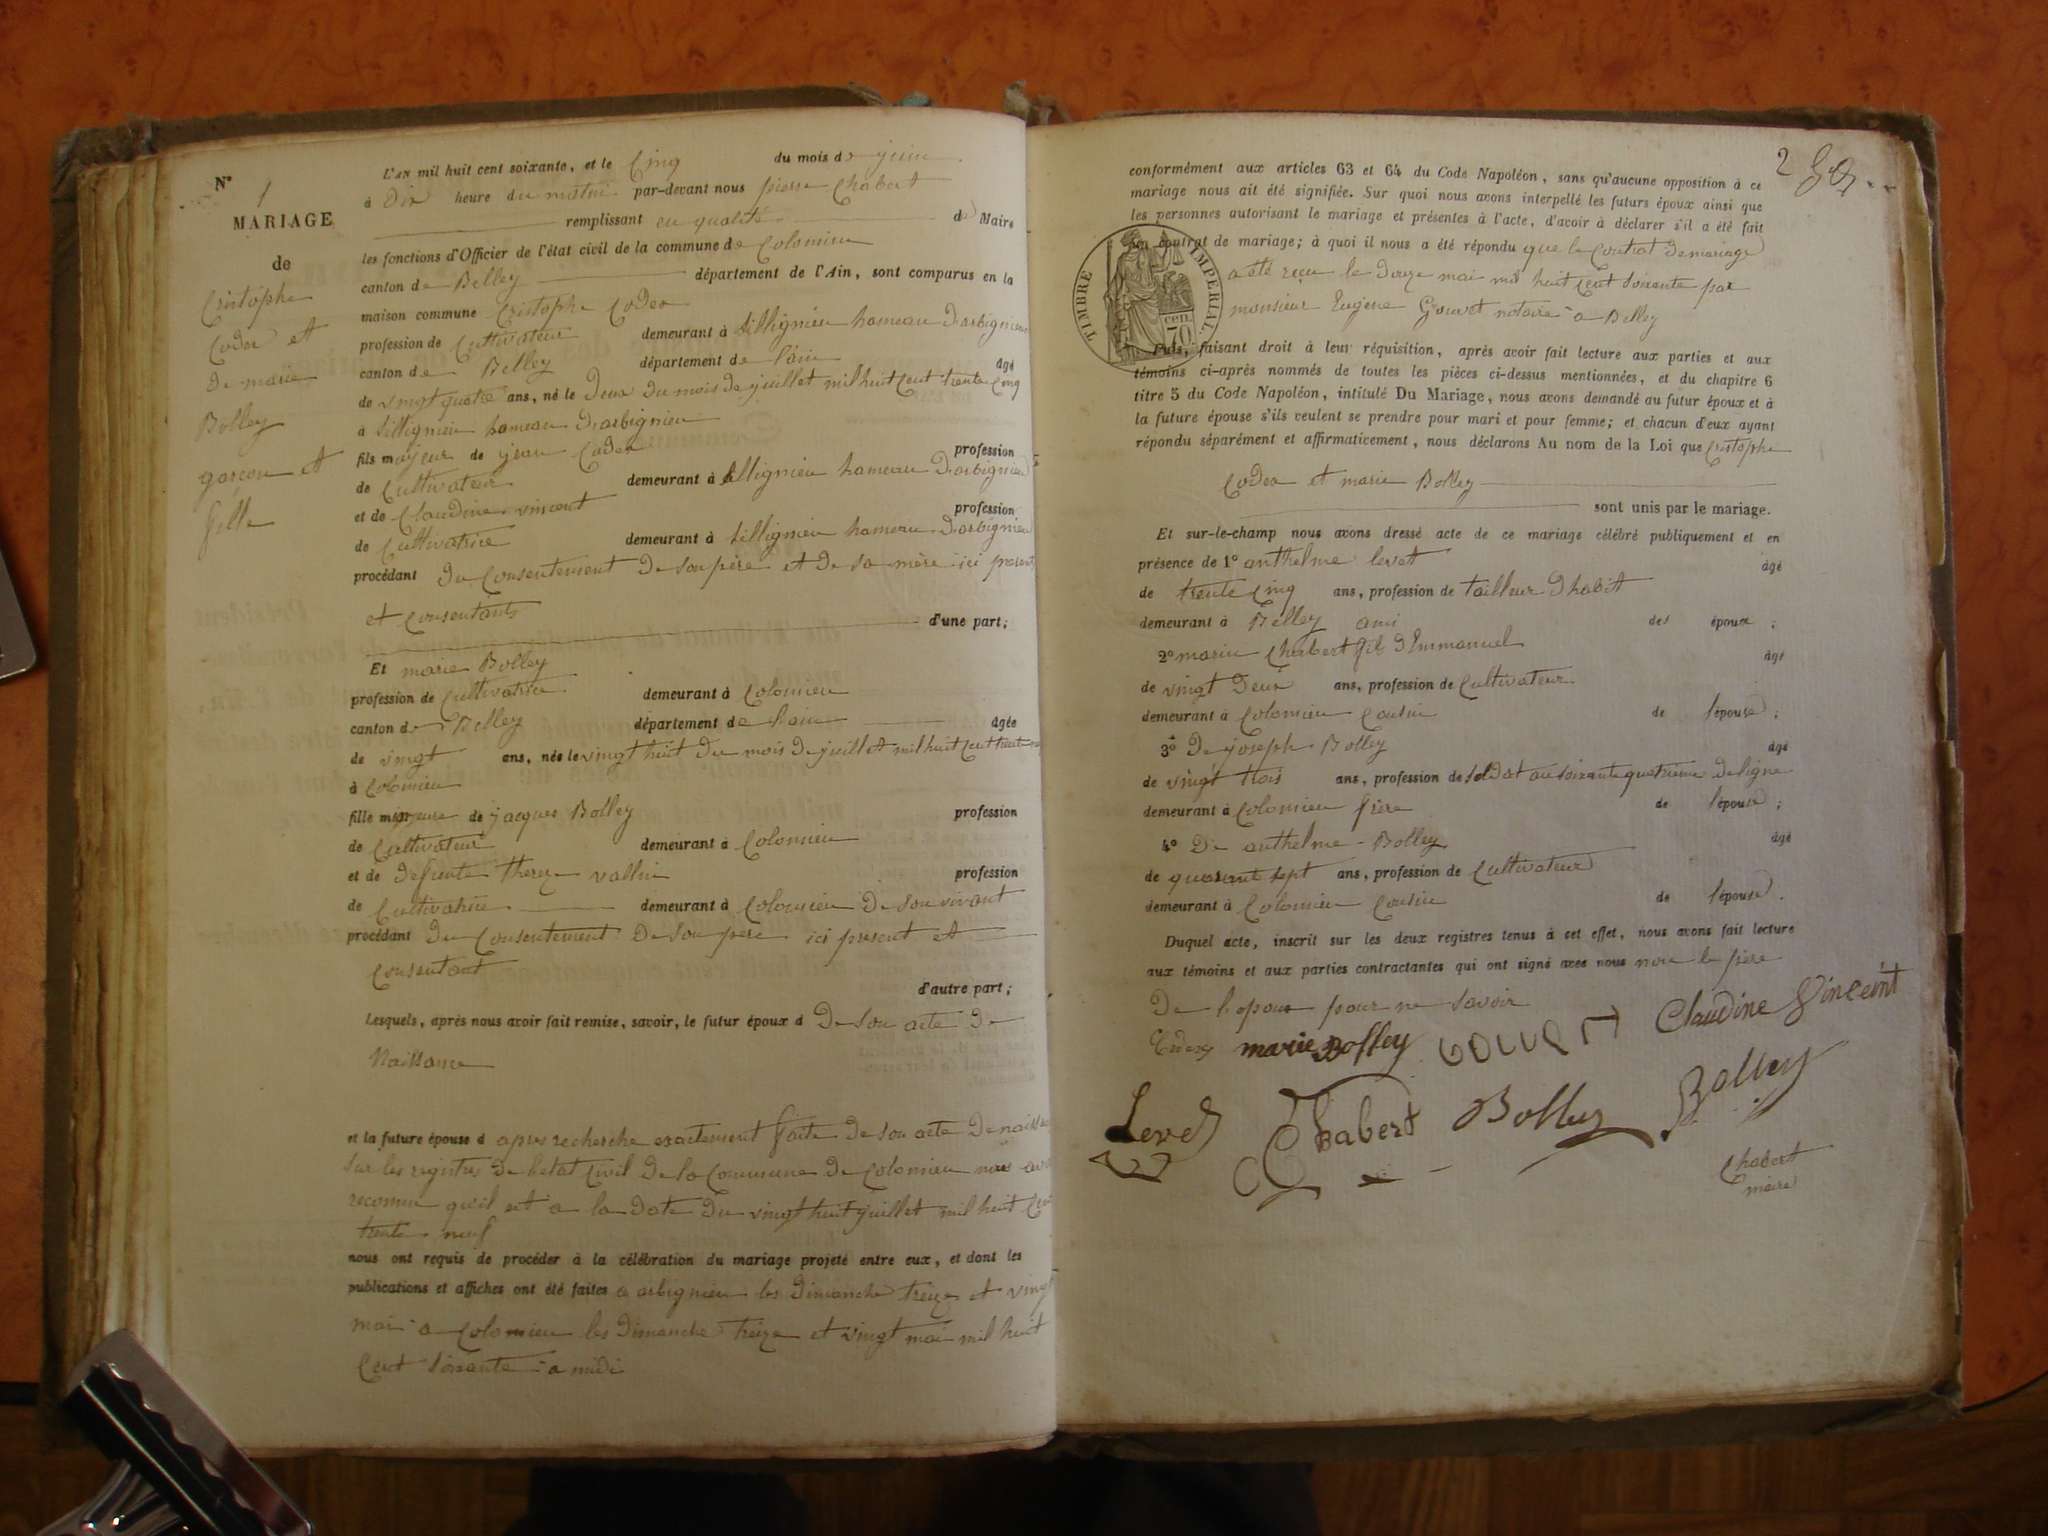 N° 1
MARIAGE
de
Cristophe
Coder et
de marie
Bolley
garçon et
fille
L'AN mil huit cent soixante, et le Cinq du mois de juin
à Dix heure du matin par-devant nous pierre Chabert
remplissant en qualité de Maire
les fonctions d'Officier de l'état civil de la commune de Colomieu
canton de Belley département de l'Ain, sont comparus en la
maison commune Cristophe Coder
profession de Cultivateur demeurant à Sillignieu hameau D'arbignieu
canton de Belley département de l'ain âgé
de vingt quatre ans, né le Deux du mois de juillet mil huit Cent trente Cinq
à Sillignieu hameau D'arbignieu
fils majeur de jean Coder profession
de Cultivateur demeurant à Sillignieu hameau D'arbignieu
et de Claudine vincent profession
de Cultivatrice demeurant à Sillignieu hameau D'arbignieu
procédant du Consentement de son père et de sa mère ici present
et Consentants
d'une part;
Et marie Bolley
profession de Cultivatrice demeurant à Colomieu
canton de Belley département de l'ain âgée
de vingt ans, née le vingt huit du mois de juillet mil huit Cent trente
à Colomieu
fille mineure de jacques Bolley profession
de Cultivateur demeurant à Colomieu
et de Defunte therese vallin profession
de Cultivatrice demeurant à Colomieu De son vivant
procédant du Consentement De son père ici present et
Consentant
d'autre part;
Lesquels, après nous avoir fait remise, savoir, le futur époux d De son acte De
Naissance
et la future épouse d apres recherche exactement faite de son acte De naiss
sur les registres De letat Civil De la Commune De Colomieu nous avo
reconnu quil est a la Date Du vingt huit juillet mil huit Cent
trente neuf
nous ont requis de procéder à la célébration du mariage projeté entre eux, et dont les
publications et affiches ont été faites a arbignieu les Dimanche treize et vingt
mai a Colomieu les Dimanche treize et vingt mai mil huit
Cent soixante a midi
2
conformément aux articles 63 et 64 du Code Napoléon, sans qu'aucune opposition à ce
mariage nous ait été signifiée. Sur quoi nous avons interpellé les futurs époux ainsi que
les personnes autorisant le mariage et présentes à l'acte, d'avoir à déclarer s'il a été fait
un contrat de mariage; à quoi il nous a été répondu que le Contrat De mariage
a été reçu le Douze mai mil huit Cent soixante par
monsieur Eugène Gouvet notaire a Belley
TIMBRE IMPERIAL.
cen. 70
Puis, faisant droit à leur réquisition, après avoir fait lecture aux parties et aux
témoins ci-après nommés de toutes les pièces ci-dessus mentionnées, et du chapitre 6
titre 5 du Code Napoléon, intitulé Du Mariage, nous avons demandé au futur époux et à
la future épouse s'ils veulent se prendre pour mari et pour femme; et chacun d'eux ayant
répondu séparément et affirmativement, nous déclarons Au nom de la Loi que Cristophe
Coder et marie Bolley
sont unis par le mariage.
Et sur-le-champ nous avons dressé acte de ce mariage célébré publiquement et en
présence de 1° anthelme levet âgé
de trente Cinq ans, profession de tailleur D'habit
demeurant à Belley ami des époux;
2° marin Chabert fils D'Emmanuel âgé
de vingt Deux ans, profession de Cultivateur
demeurant à Colomieu Cousin de l'épouse;
3° De joseph Bolley âgé
de vingt trois ans, profession de soldat au soixante quatrième De ligne
demeurant à Colomieu frère de l'épouse;
4° De anthelme Bolley âgé
de quarante sept ans, profession de Cultivateur
demeurant à Colomieu Cousin de l'épouse.
Duquel acte, inscrit sur les deux registres tenus à cet effet, nous avons fait lecture
aux témoins et aux parties contractantes qui ont signé avec nous non le père
De lepoux pour ne savoir
marie Bolley Claudine Vinceint
Levet Chabert Bolley Bolley
Chabert
maire